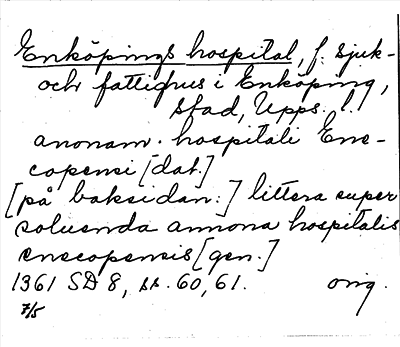 Enköpings hospital, f. sjuk-
och fattighus i Enköping,
stad, Upps. l.
anonam. hospitali Ene-
copensi [dat.]
[på baksidan:] littera super
soluenda annona hospitalis
enecopensis [gen.]
1361 SD 8, ss. 60, 61. orig.
7/5